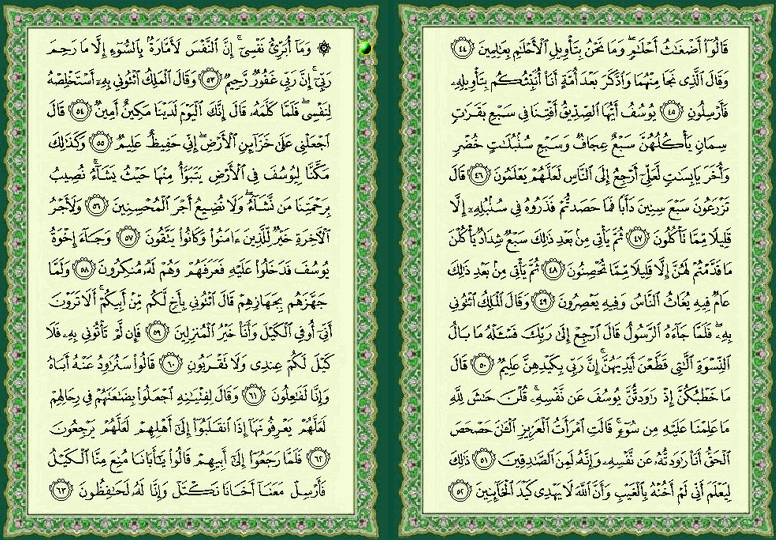 قَالُوٓا۟ أَضْغَٰثُ أَحْلَٰمٍۢ ۖ وَمَا نَحْنُ بِتَأْوِيلِ ٱلْأَحْلَٰمِ بِعَٰلِمِينَ ٤٤
وَقَالَ ٱلَّذِى نَجَا مِنْهُمَا وَٱدَّكَرَ بَعْدَ أُمَّةٍ أَنَا۠ أُنَبِّئُكُم بِتَأْوِيلِهِۦ
فَأَرْسِلُونِ ٤٥ يُوسُفُ أَيُّهَا ٱلصِّدِّيقُ أَفْتِنَا فِى سَبْعِ بَقَرَٰتٍۢ
سِمَانٍۢ يَأْكُلُهُنَّ سَبْعٌ عِجَافٌۭ وَسَبْعِ سُنۢبُلَٰتٍ خُضْرٍۢ
وَأُخَرَ يَابِسَٰتٍۢ لَّعَلِّىٓ أَرْجِعُ إِلَى ٱلنَّاسِ لَعَلَّهُمْ يَعْلَمُونَ ٤٦ قَالَ
تَزْرَعُونَ سَبْعَ سِنِينَ دَأَبًۭا فَمَا حَصَدتُّمْ فَذَرُوهُ فِى سُنۢبُلِهِۦٓ إِلَّا
قَلِيلًۭا مِّمَّا تَأْكُلُونَ ٤٧ ثُمَّ يَأْتِى مِنۢ بَعْدِ ذَٰلِكَ سَبْعٌۭ شِدَادٌۭ يَأْكُلْنَ
مَا قَدَّمْتُمْ لَهُنَّ إِلَّا قَلِيلًۭا مِّمَّا تُحْصِنُونَ ٤٨ ثُمَّ يَأْتِى مِنۢ بَعْدِ ذَٰلِكَ
عَامٌۭ فِيهِ يُغَاثُ ٱلنَّاسُ وَفِيهِ يَعْصِرُونَ ٤٩ وَقَالَ ٱلْمَلِكُ ٱئْتُونِى
بِهِۦ ۖ فَلَمَّا جَآءَهُ ٱلرَّسُولُ قَالَ ٱرْجِعْ إِلَىٰ رَبِّكَ فَسْـَٔلْهُ مَا بَالُ
ٱلنِّسْوَةِ ٱلَّٰتِى قَطَّعْنَ أَيْدِيَهُنَّ ۚ إِنَّ رَبِّى بِكَيْدِهِنَّ عَلِيمٌۭ ٥٠ قَالَ
مَا خَطْبُكُنَّ إِذْ رَٰوَدتُّنَّ يُوسُفَ عَن نَّفْسِهِۦ ۚ قُلْنَ حَٰشَ لِلَّهِ
مَا عَلِمْنَا عَلَيْهِ مِن سُوٓءٍۢ ۚ قَالَتِ ٱمْرَأَتُ ٱلْعَزِيزِ ٱلْـَٰٔنَ حَصْحَصَ
ٱلْحَقُّ أَنَا۠ رَٰوَدتُّهُۥ عَن نَّفْسِهِۦ وَإِنَّهُۥ لَمِنَ ٱلصَّٰدِقِينَ ٥١ ذَٰلِكَ
لِيَعْلَمَ أَنِّى لَمْ أَخُنْهُ بِٱلْغَيْبِ وَأَنَّ ٱللَّهَ لَا يَهْدِى كَيْدَ ٱلْخَآئِنِينَ ٥٢
۞ وَمَآ أُبَرِّئُ نَفْسِىٓ ۚ إِنَّ ٱلنَّفْسَ لَأَمَّارَةٌۢ بِٱلسُّوٓءِ إِلَّا مَا رَحِمَ
رَبِّىٓ ۚ إِنَّ رَبِّى غَفُورٌۭ رَّحِيمٌۭ ٥٣ وَقَالَ ٱلْمَلِكُ ٱئْتُونِى بِهِۦٓ أَسْتَخْلِصْهُ
لِنَفْسِى ۖ فَلَمَّا كَلَّمَهُۥ قَالَ إِنَّكَ ٱلْيَوْمَ لَدَيْنَا مَكِينٌ أَمِينٌۭ ٥٤ قَالَ
ٱجْعَلْنِى عَلَىٰ خَزَآئِنِ ٱلْأَرْضِ ۖ إِنِّى حَفِيظٌ عَلِيمٌۭ ٥٥ وَكَذَٰلِكَ
مَكَّنَّا لِيُوسُفَ فِى ٱلْأَرْضِ يَتَبَوَّأُ مِنْهَا حَيْثُ يَشَآءُ ۚ نُصِيبُ
بِرَحْمَتِنَا مَن نَّشَآءُ ۖ وَلَا نُضِيعُ أَجْرَ ٱلْمُحْسِنِينَ ٥٦ وَلَأَجْرُ
ٱلْـَٔاخِرَةِ خَيْرٌۭ لِّلَّذِينَ ءَامَنُوا۟ وَكَانُوا۟ يَتَّقُونَ ٥٧ وَجَآءَ إِخْوَةُ
يُوسُفَ فَدَخَلُوا۟ عَلَيْهِ فَعَرَفَهُمْ وَهُمْ لَهُۥ مُنكِرُونَ ٥٨ وَلَمَّا
جَهَّزَهُم بِجَهَازِهِمْ قَالَ ٱئْتُونِى بِأَخٍۢ لَّكُم مِّنْ أَبِيكُمْ ۚ أَلَا تَرَوْنَ
أَنِّىٓ أُوفِى ٱلْكَيْلَ وَأَنَا۠ خَيْرُ ٱلْمُنزِلِينَ ٥٩ فَإِن لَّمْ تَأْتُونِى بِهِۦ فَلَا
كَيْلَ لَكُمْ عِندِى وَلَا تَقْرَبُونِ ٦٠ قَالُوا۟ سَنُرَٰوِدُ عَنْهُ أَبَاهُ
وَإِنَّا لَفَٰعِلُونَ ٦١ وَقَالَ لِفِتْيَٰنِهِ ٱجْعَلُوا۟ بِضَٰعَتَهُمْ فِى رِحَالِهِمْ
لَعَلَّهُمْ يَعْرِفُونَهَآ إِذَا ٱنقَلَبُوٓا۟ إِلَىٰٓ أَهْلِهِمْ لَعَلَّهُمْ يَرْجِعُونَ
٦٢ فَلَمَّا رَجَعُوٓا۟ إِلَىٰٓ أَبِيهِمْ قَالُوا۟ يَٰٓأَبَانَا مُنِعَ مِنَّا ٱلْكَيْلُ
فَأَرْسِلْ مَعَنَآ أَخَانَا نَكْتَلْ وَإِنَّا لَهُۥ لَحَٰفِظُونَ ٦٣